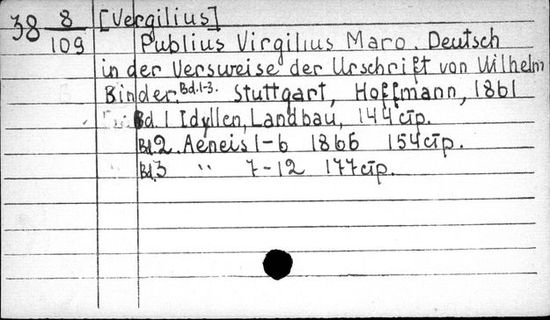 38 8/109 [Vergilius]
Publius Virgilius Maro. Deutsch
in der Versweise der Urschrift von Wilhelm
Binder. Bd.1-3. Stuttgart, Hoffmann, 1861
Bd.1 Idyllen, Landbau, 144 стр.
Bd.2. Aeneis 1-6 1866 154 стр.
Bd.3 " 7-12 177 стр.